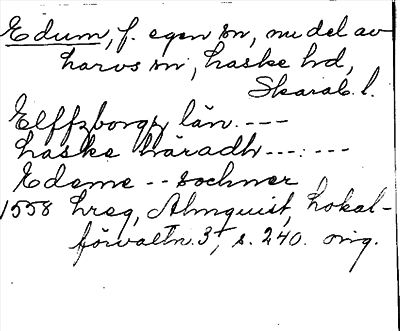 Edum, f. egen sn, nu del av
Larvs sn, Laske hd,
Skarab. l.
Elffzborgz län. ---
Laske häradh ---:---
Edeme -- sochner
1558 hreg, Almquist, Lokal-
förvaltn. 3, s. 240. orig.